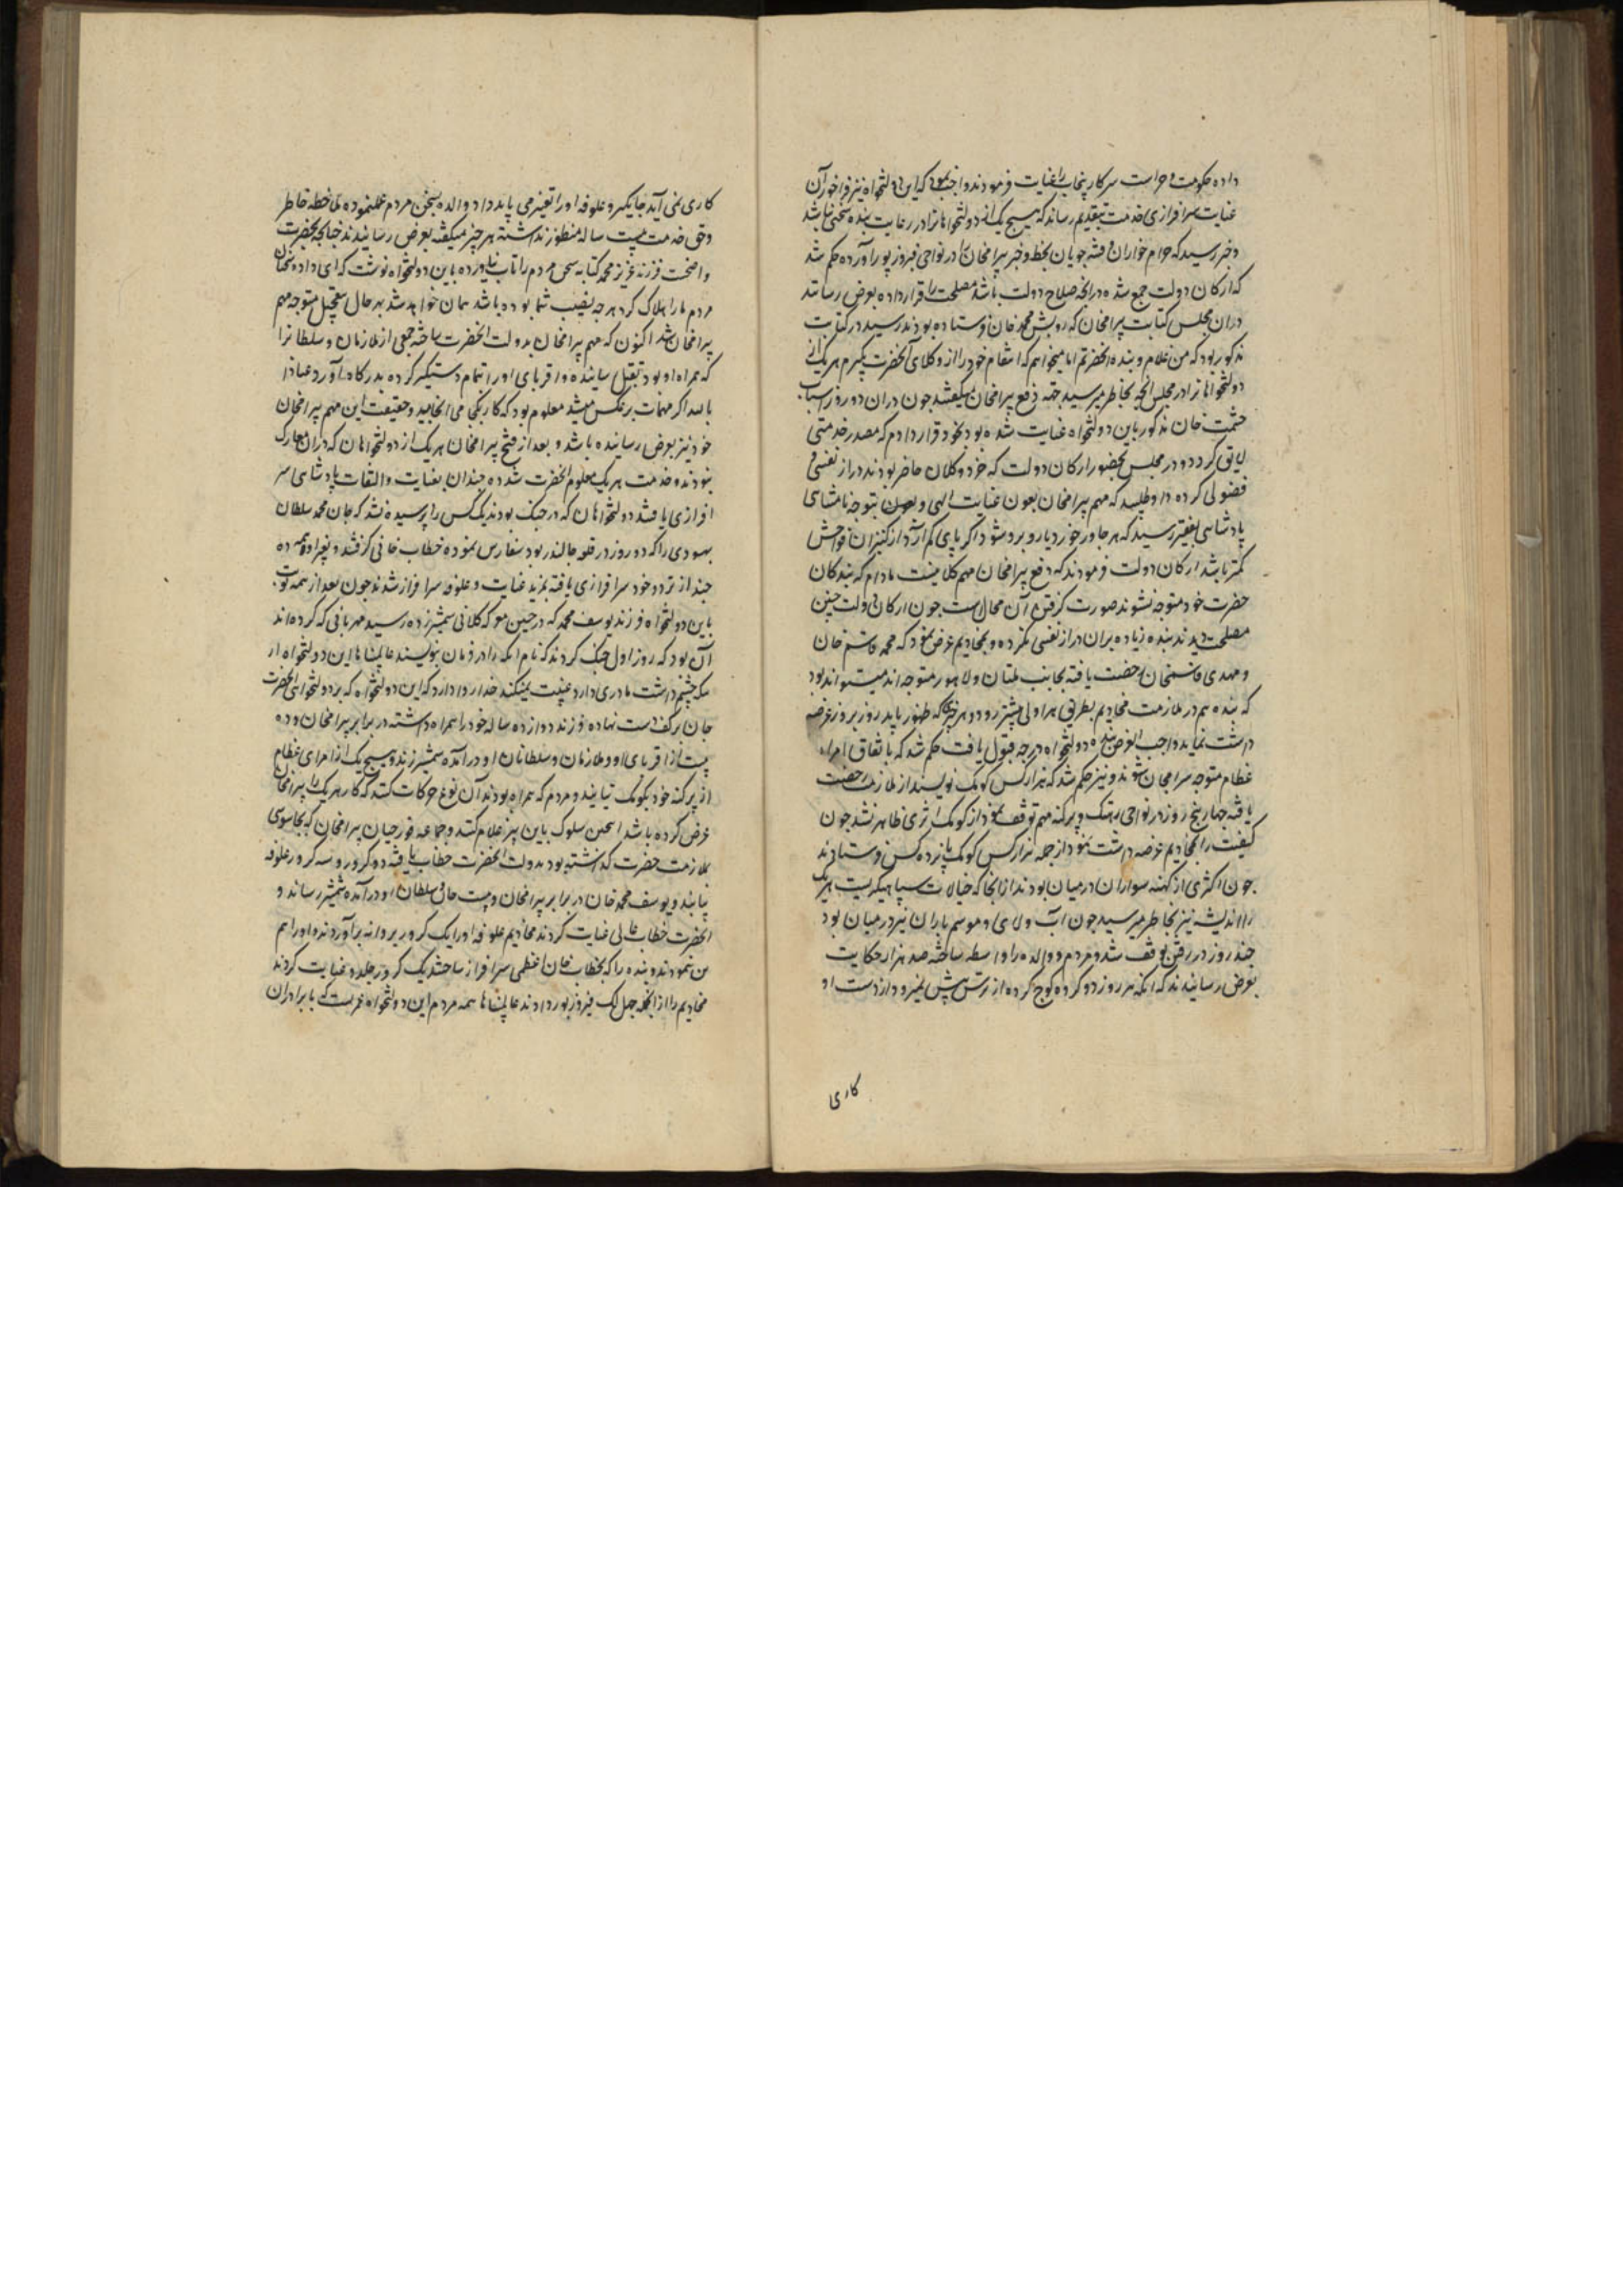 داده حکومت و حراست سرکار پنجاب را عنایت فرمودند واجب بود که این دولتخواه نیز فراخور آن
عنایت سرافرازی خدمت بتقدیم رساند که هیچ یک از دولتخواهانرا در رعایت بنده سخنی نباشد
و خبر رسید که حرام خواران و فتنه جویان بخط و خبر بیرامخان را در نواحی فیروزپور آورده حکم شد
که ارکان دولت جمع شده در آنچه صلاح دولت باشد مصلحت را قرار داده بعرض رسانند
در آن مجلس کتابت بیرامخان که درویش محمد خان فرستاده بودند رسید در کتابت
مذکور بود که من غلام و بنده آنحضرتم اما میخواهم که انتقام خود را از وکلای آنحضرت بگیرم هر یک از
دولتخواهانرا در مجلس آنچه بخاطر میرسید جهة دفع بیرامخان میگفتند چون در آن دو روز اسباب
حشمت خان مذکور باین دولتخواه عنایت شده بود بخود قرار دادم که مصدر خدمتی
لایق گردد و در مجلس بحضور ارکان دولت که خرد و کلان حاضر بودند دراز نفسی و
فضولی کرده داوطلبید که مهم بیرامخان بعون عنایت الهی و بعون توجه نامتناهی
پادشاهی بفقیر رسید که هر جا در خورد یا روبرو شود اگر پای کم آرد از کنیزان فواحش
کمتر باشد ارکان دولت فرمودند که دفع بیرامخان مهم کلانیست مادام که بندگان
حضرت خود متوجه نشوند صورت گرفتن آن محالست چون ارکان دولت چنین
مصلحت دیدند بنده زیاده بر آن دراز نفسی نکرده و بمخادیم عرض نمود که محمد قاسم خان
و مهدی قاسمخان رخصت یافته بجانب ملتان و لاهور متوجه اند میتواند بود
که بنده هم در ملازمت مخادیم بطریق هراولی پیشتر رود و هر چیز که ظهور یابد روز بروز عرضه
داشت نماید واجب العرض بنده دولتخواه درجه قبول یافت حکم شد که باتفاق امراء
عظام متوجه بیرامخان شوند و نیز حکم شد که هزار کس کومک نویسند از ملازمت رخصت
یافته چهار پنج روز در نواحی رهتک و پرگنه مهم توقف نمود از کومک اثری ظاهر نشد چون
کیفیت را بمخادیم عرضه داشت نمود از جمله هزار کس کومک پانزده کس فرستادند
چون اکثری از کهنه سواران در میان بودند از آنجا که خیالات سپاهیگریست هر یک
را اندیشه نیز بخاطر میرسید چون آب و لای و موسم باران نیز در میان بود
چند روز در رفتن توقف شد و مردم و والده را واسطه ساخته صد هزار حکایت
بعرض رسانیدند که اتکه هر روز دو کروه کوچ کرده از ترس پیش نمیرود از دست او
کاری
کاری نمی آید جایگیر و علوفه او را تغیر می باید داد والده بسخن مردم عمل نموده ملاحظه خاطر
و حق خدمت بیست ساله منظور نداشته هر چیز میگفتند بعرض رسانیدند چنانچه بحضرت
واضحست فرزند عزیز محمد کتابه سخن مردم را تاب نیاورده باین دولتخواه نوشت که ای داده سخنان
مردم ما را هلاک کرد هر چه نصیب شما بوده باشد همان خواهد شد بهر حال بتعجیل متوجه مهم
بیرامخان شد اکنون که مهم بیرامخان بدولت آنحضرت ساخته جمعی از ملازمان و سلطانانرا
که همراه او بود بقتل رسانیده و اقربای او را تمام دستگیر کرده بدرگاه آورد عیاذا
بالله اگر مهمات بر عکس میشد معلوم بود که کار بکجا می انجامید و حقیقت این مهم بیرامخان
خود نیز بعرض رسانیده باشد و بعد از فتح بیرامخان هر یک از دولتخواهان که در آن معارک
نبودند و خدمت هر یک معلوم آنحضرت شده چندان بعنایت و التفات پادشاهی سر
افرازی یافتند دولتخواهان که در جنگ بودند یک کس را پرسیده نشد که جان محمد سلطان
بهسودی را که دو روز در قلعه جالندر بود سفارس نموده خطاب خانی گرفتند و بغیر او همه ده
چند از تردد خود سرافرازی یافته بمزید عنایت و علوفه سرافراز شدند چون بعد از همه نوبت
باین دولتخواه و فرزند یوسف محمد که در چنین معرکه کلانی شمشیر زده رسید مهربانی که کرده اند
آن بود که روز اول جنگ کردند که نام اتکه را در فرمان بنویسند عالم پناها این دولتخواه از
که چشم داشت مادری دارد غیبت میکنند خدا روا دارد که این دولتخواه که بر دولتخواهی آنحضرت
جان بر کف دست نهاده فرزند دوازده ساله خود را همراه داشته در برابر بیرامخان و ده
بیست از اقربای او و ملازمان و سلطانان او در آمده شمشیر زند و هیچ یک از امرای عظام
از پرگنه خود بکومک نیایند و مردم که همراه بودند آن نوع حرکات کنند که کار هر یک را بیرامخان
عرض کرده باشد اینچنین سلوک باین پیر غلام کنند و جماعه قورچیان بیرامخان که بجاسوسی
ملازمت حضرت گذاشته بود بدولت آنحضرت خطاب یافته دو کرور و سه کرور علوفه
یابند و یوسف محمد خان در برابر بیرامخان و بیست خان و سلطان او در آمده شمشیر رساند و
آنحضرت خطاب خانی عنایت کردند مخادیم علوفه او را یک کرور پروانه برآوردند و او را هم
من نمودند و بنده را که بخطاب خان اعظمی سرافراز ساختند یک کرور جلدو عنایت کردند
مخادیم را از آنجمله چهل لک فیروزپور دادند عالم پناها همه مردم این دولتخواه عمریست که با برادران